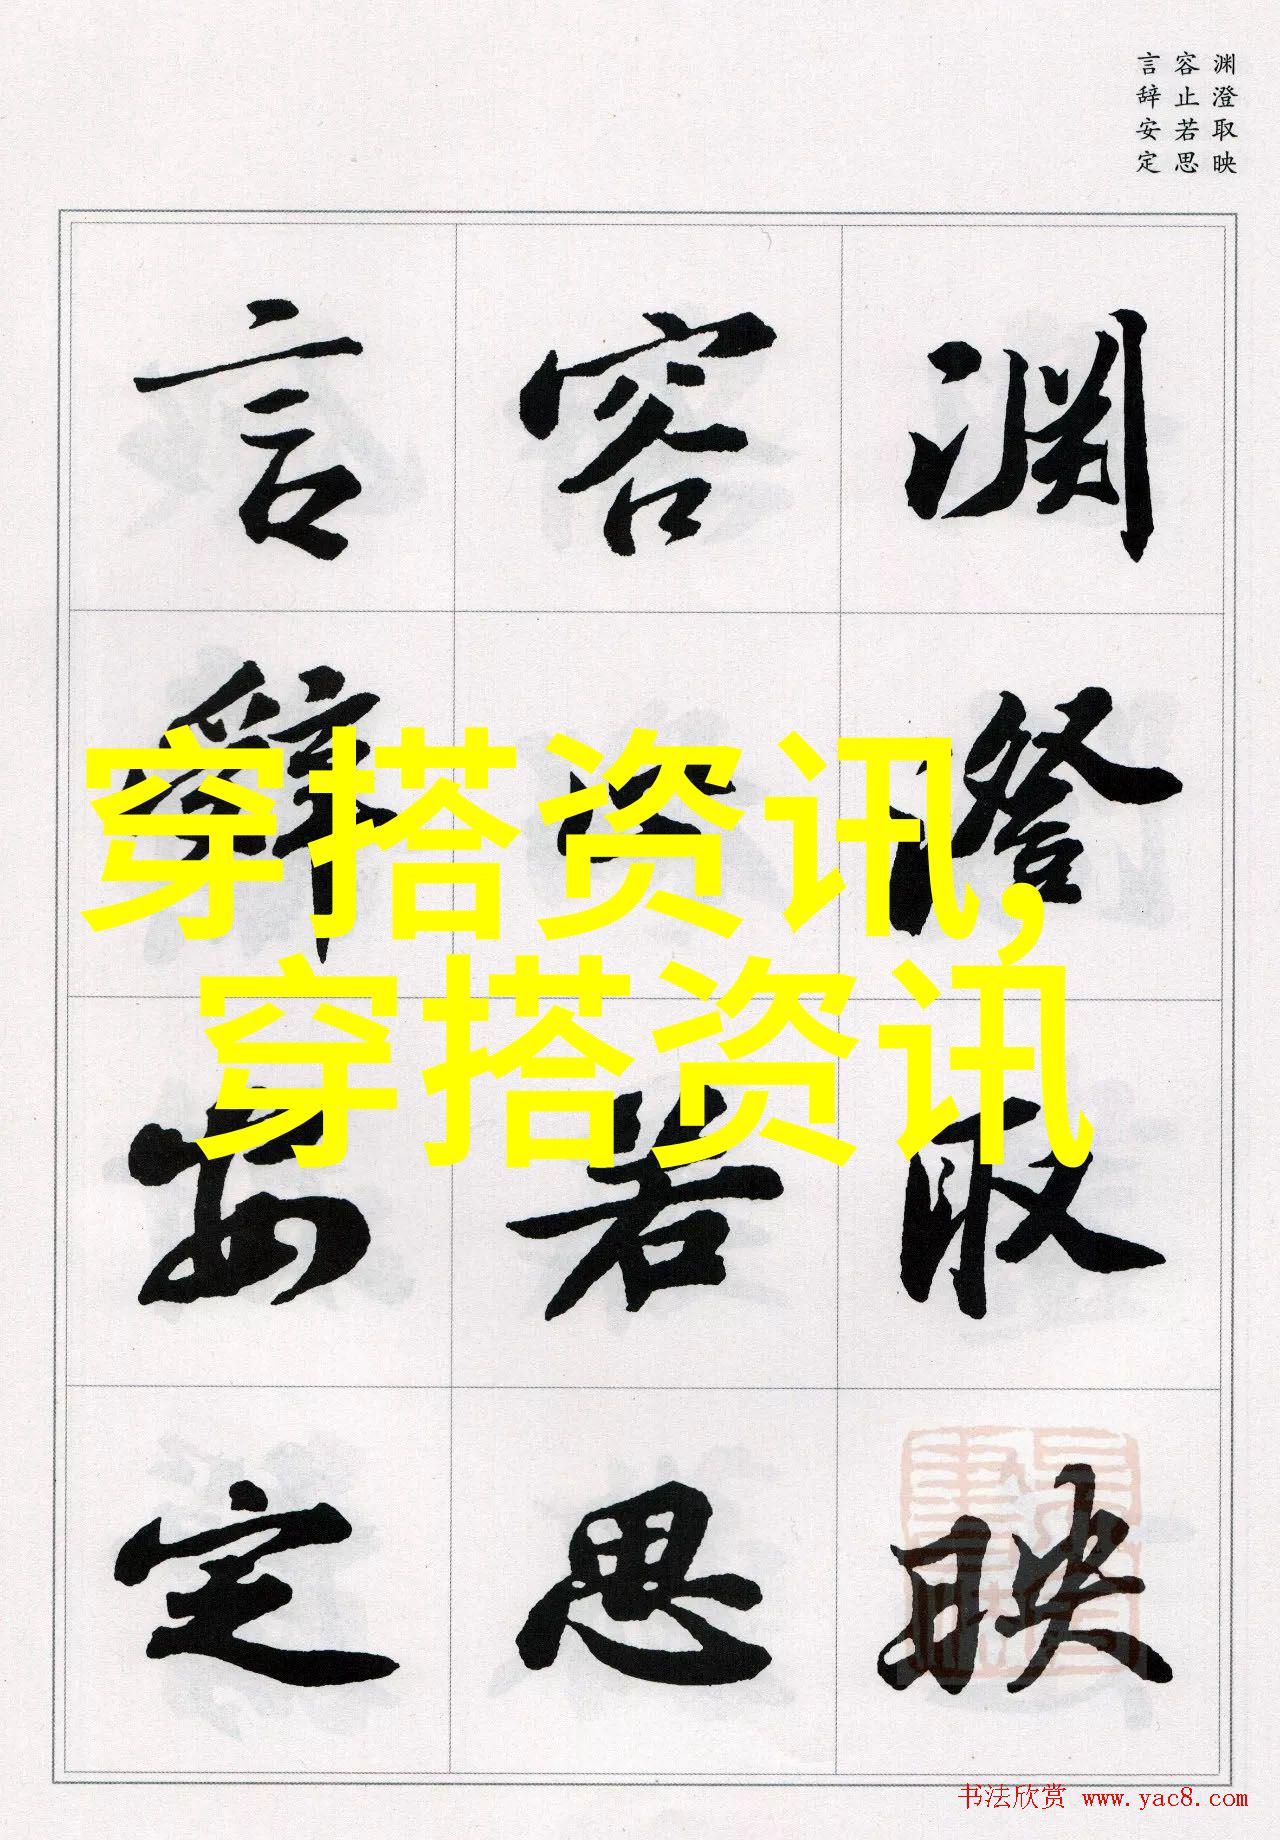 渊澄取映
容止若思
言辞安定
渊澄取映
容止若思
言辞安定
穿搭资讯,
穿搭资讯
书法欣赏 www.yac8.com